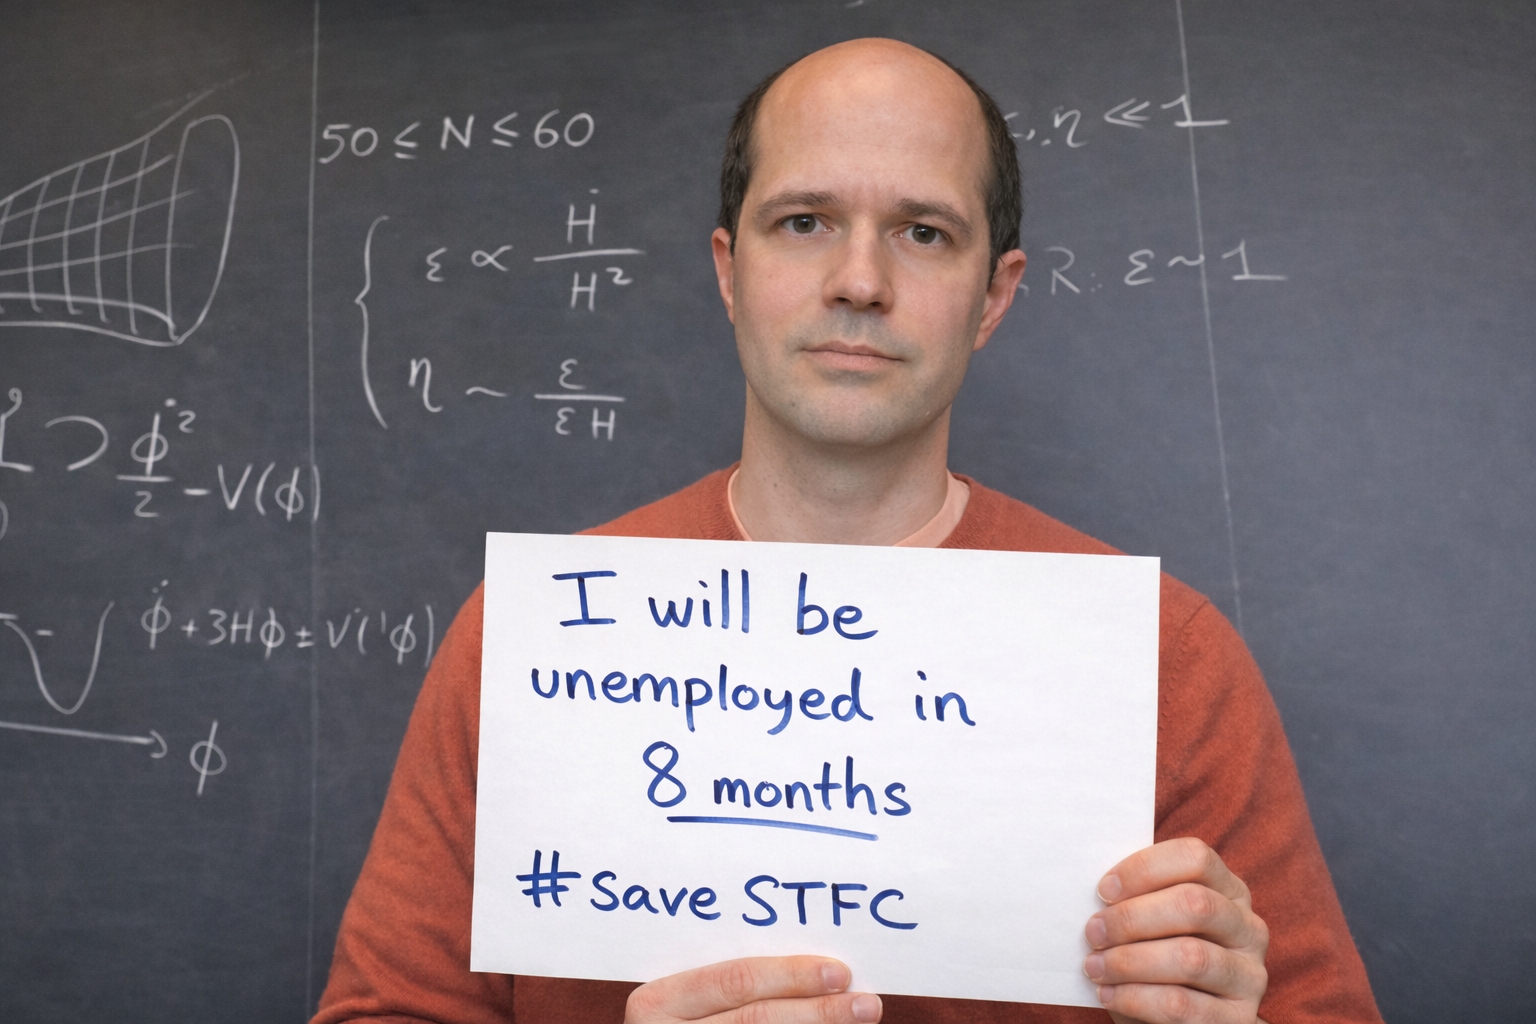 50 ≤ N ≤ 60
η ≪ 1
ε ∝ Ḣ / H²
η ~ ε / εH
R: ε ~ 1
⊃ φ̇² / 2 - V(φ)
φ̇ + 3Hφ ± V('φ)
φ
I will be
unemployed in
8 months
#save STFC